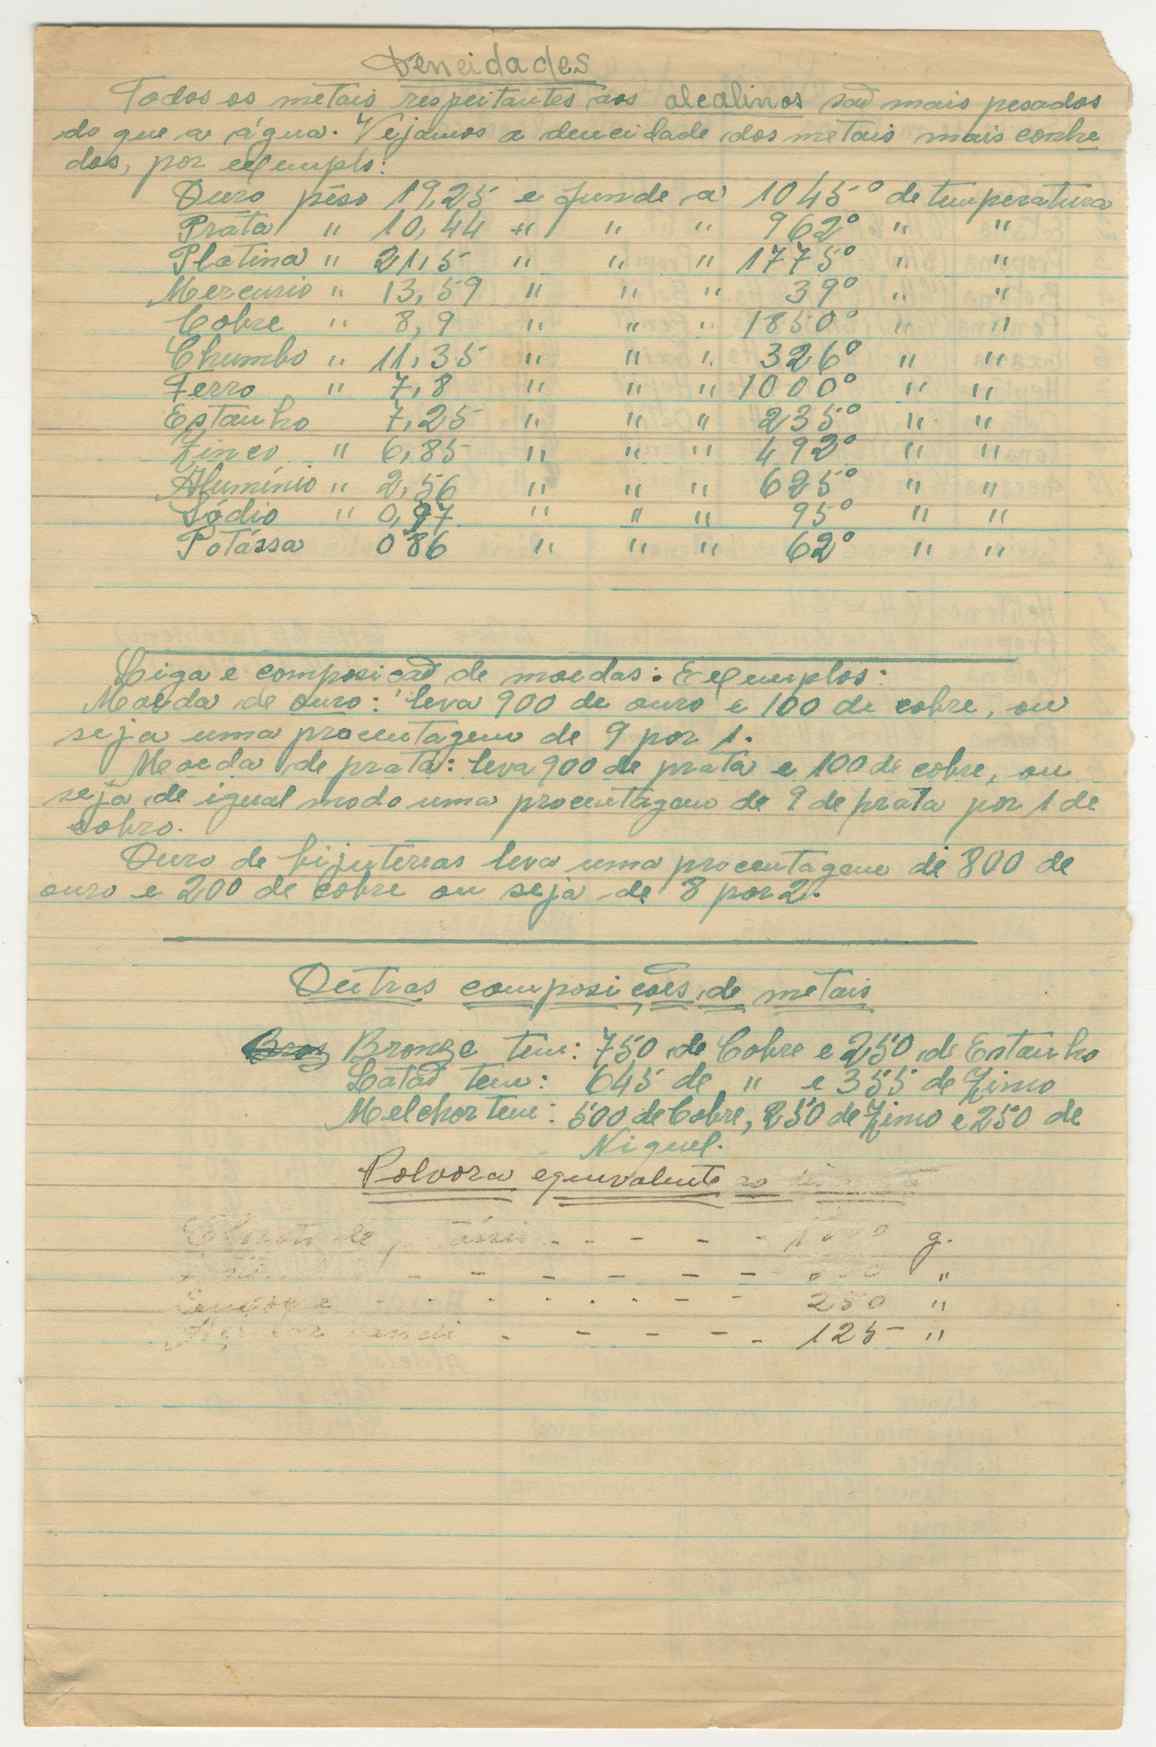 Dencidades
Todos os metais respeitantes aos alcalinos são mais pesados
do que a água. Vejamos a dencidade dos metais mais conhe
dos, por exemplo:
Ouro pêso 19,25 e funde a 1045º de temperatura
Prata " 10,44 " " " 962º " "
Platina " 21,5 " " " 1775º " "
Mercurio " 13,59 " " " 39º " "
Cobre " 8,9 " " " 1850º " "
Chumbo " 11,35 " " " 326º " "
Ferro " 7,8 " " " 1000º " "
Estanho 7,25 " " " 235º " "
Zinco " 6,85 " " " 492º " "
Alumínio " 2,56 " " " 625º " "
Sódio " 0,97 " " " 95º " "
Potássa 086 " " " 62º " "
Liga e composicão de moedas: Exemplos:
Moeda de ouro: leva 900 de ouro e 100 de cobre, ou
seja uma procentagem de 9 por 1.
Moeda de prata: leva 900 de prata e 100 de cobre, ou
seja de igual modo uma procentagem de 9 de prata por 1 de
cobro.
Ouro de bijuterias leva uma procentagem de 800 de
ouro e 200 de cobre ou seja de 8 por 2.
Outras composições de metais
Bronze tem: 750 de Cobre e 250 de Estanho
Latão tem: 645 de " e 355 de Zinco
Melchor tem: 500 de Cobre, 250 de Zinco e 250 de
Niquel.
Polvora equivalente ao
de - - - - - 1000 g.
- - - - - - "
- - - - - - 250 "
- - - - - 125 "